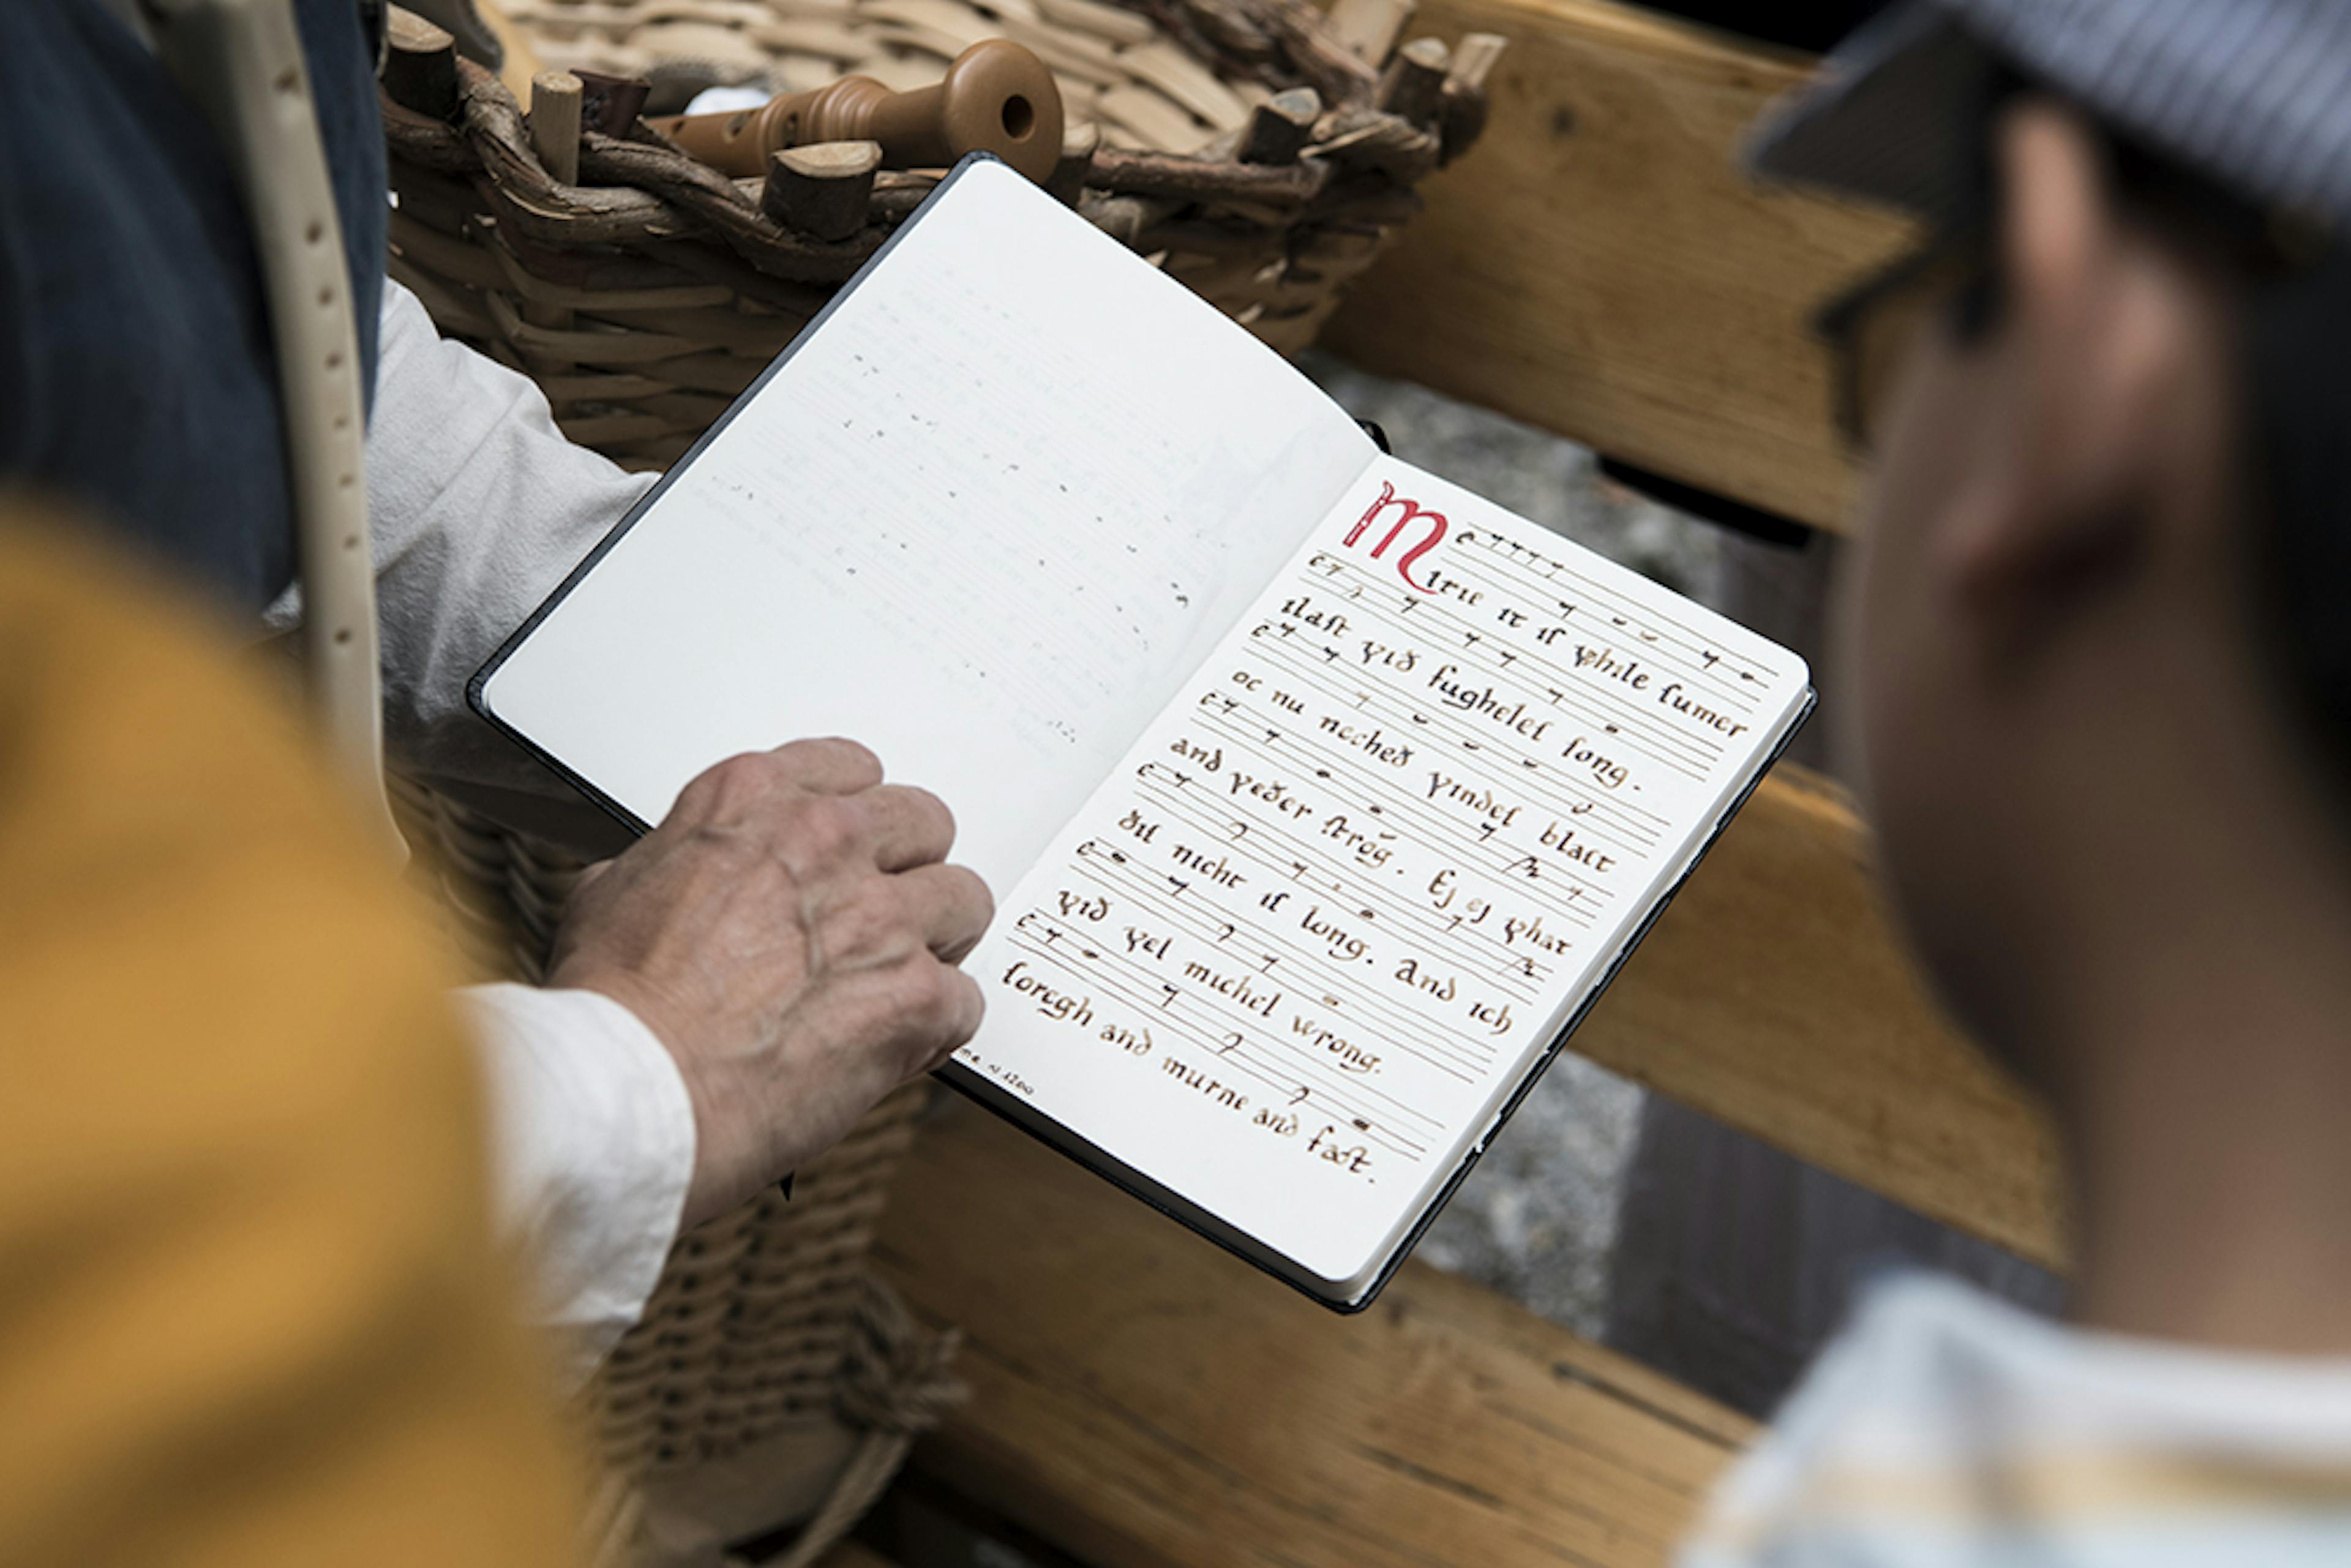 Mirie it iſ ƿhile ſumer
ilaſt ƿið fugheleſ ſong.
oc nu necheð ƿindeſ blaſt
and ƿeðer ſtrōg. Ej ej ƿhat
ðiſ nicht iſ long. And ich
ƿið ƿel michel wrong.
ſoregh and murne and faſt.